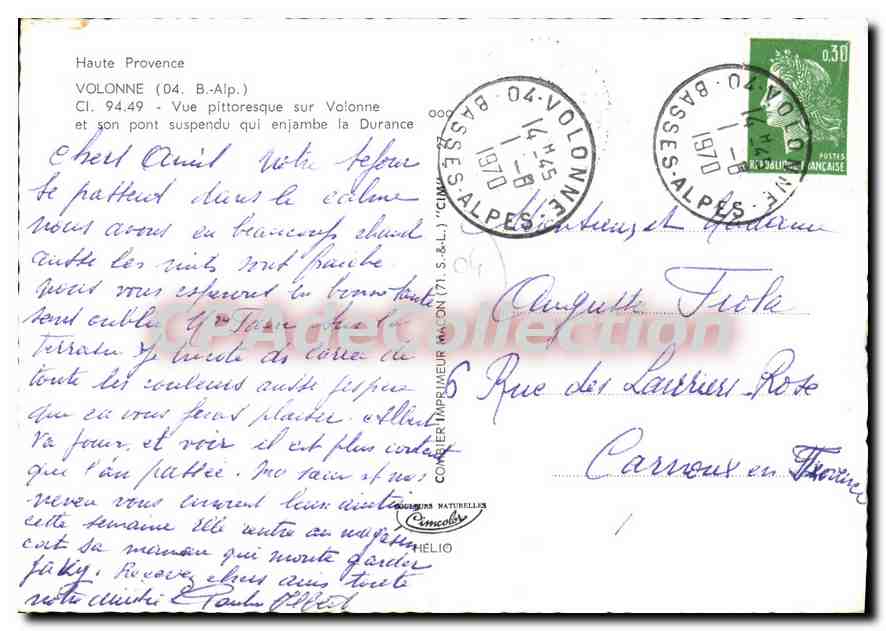 Haute Provence
VOLONNE (04. B.-Alp.)
Cl. 94.49 - Vue pittoresque sur Volonne
et son pont suspendu qui enjambe la Durance
chers Amis Notre sejour
se passent dans le calme
nous avons eu beaucoup chaud
ausse les nuits sont fraiche.
nous vous esperons en bonne sante
sans oublier Mme
toute les couleurs ausse j'espere
que ca vous feras plaisir. Albert
va jouer, et voir il est plus content
que l'an passée. Ma sœur et nos
neveu vous envoient leurs amitié
cette semaine Elle rentre au magasin
c'est sa maman qui monte garder
Jaky. Recevez chers amis toute
notre amitié Albert
COMBIER IMPRIMEUR MACON (71. S.-&-L.) "CIM"
COULEURS NATURELLES
Cimcolor
HÉLIO
VOLONNE · BASSES-ALPES · 04
14 H 45
1 -8
1970
VOLONNE · BASSES-ALPES · 04
14 H 45
1 -8
1970
0,30
POSTES
REPUBLIQUE FRANÇAISE
04
Monsieur et Madame
Auguste Fiola
6 Rue des Lauriers-Rose
Carnoux en Provence
CPAdeCollection